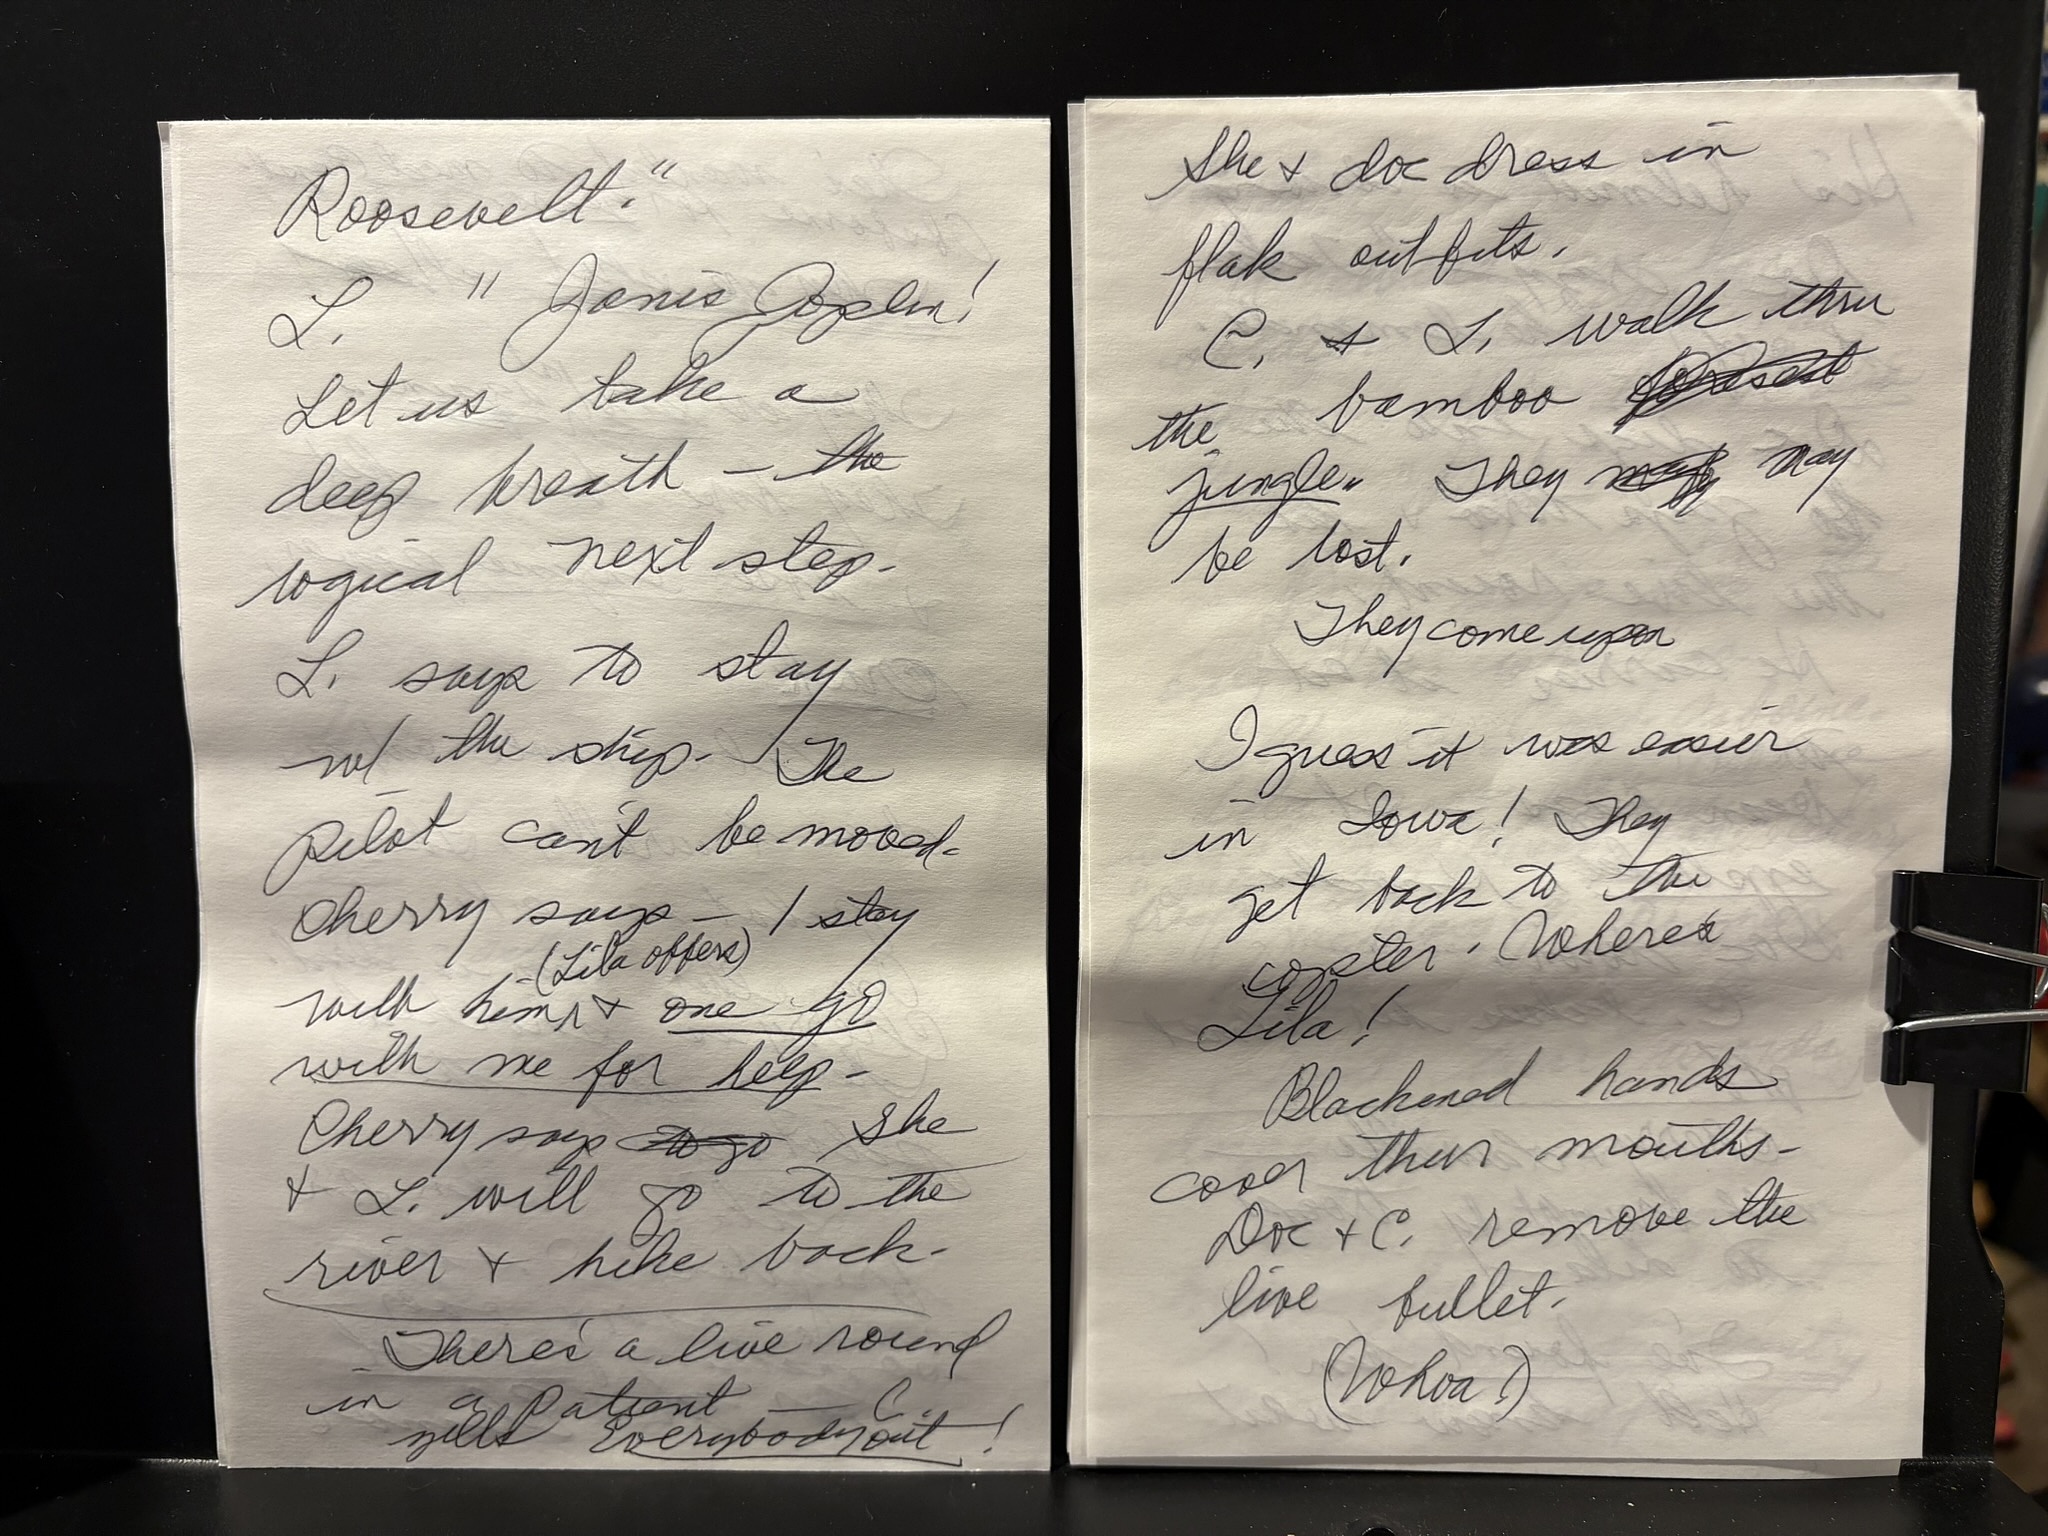 Roosevelt."
L. " Janis Joplin!
Let us take a
deep breath – the
logical next step.
L. says to stay
w/ the ship. The
Pilot can't be moved.
Cherry says – I stay
(Lila offers)
with him, & one go
with me for help –
Cherry says to go She
& L. will go to the
river & hike back.
There's a live round
in a Patient — C.
yells Everybody out!
She & doc dress in
flak outfits.
C. & L. walk thru
the bamboo forest
jungle. They may may
be lost.
They come upon
I guess it was easier
in Iowa! They
get back to the
copter. Where's
Lila!
Blackened hands
cover their mouths –
Doc & C. remove the
live bullet.
(Whoa!)